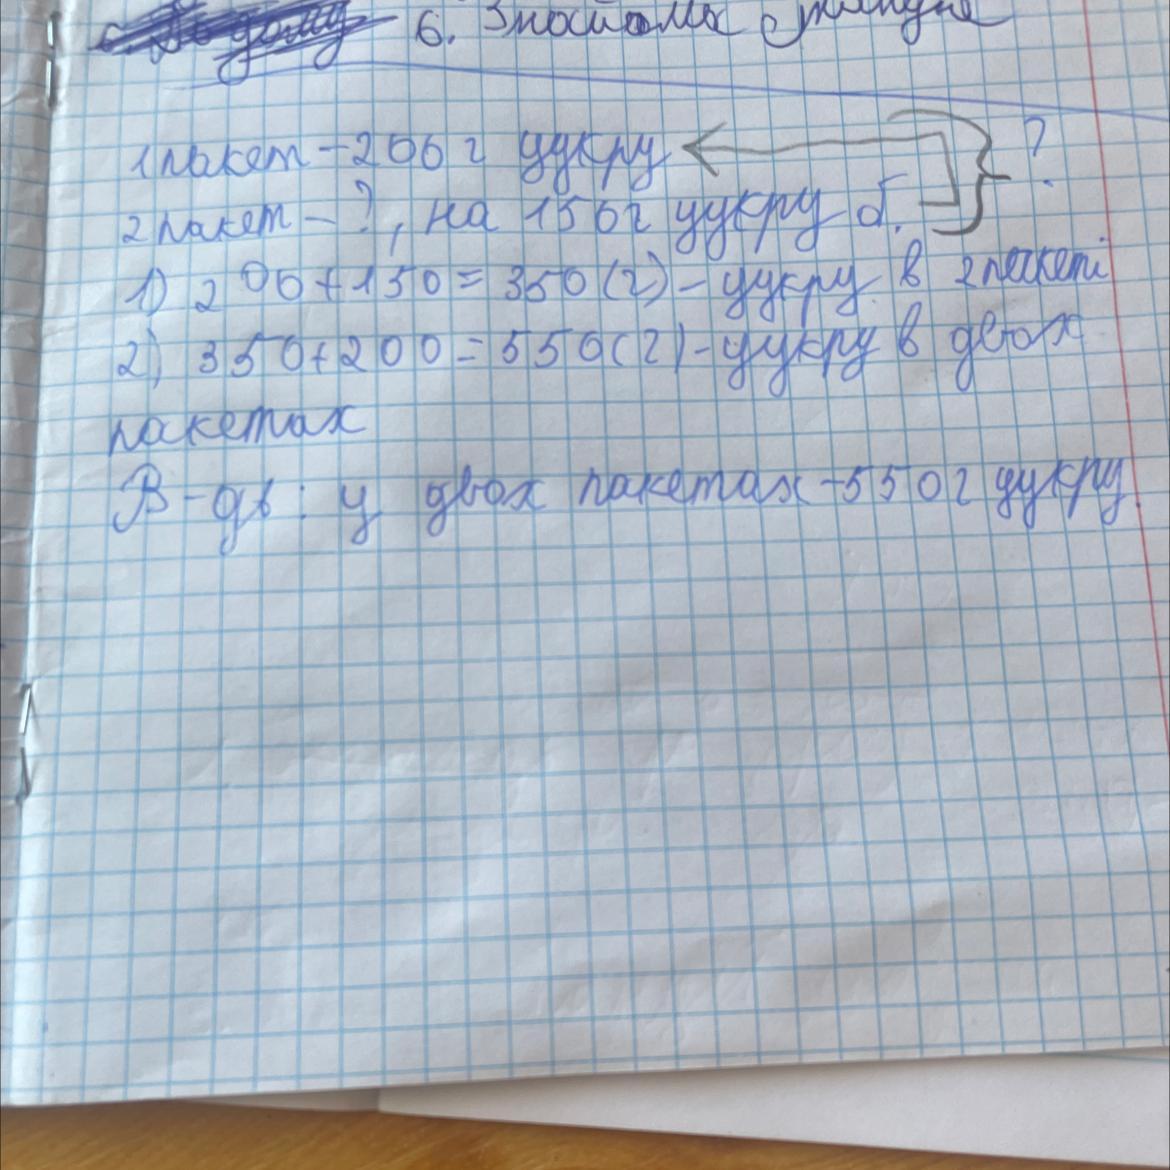 6. Знайома
1 пакет - 200 г цукру ?
2 пакет - ?, на 150 г цукру б.
1) 200+150=350(г) - цукру в 2 пакеті
2) 350+200=550(г) - цукру в двох
пакетах
В-дь: у двох пакетах - 550 г цукру.